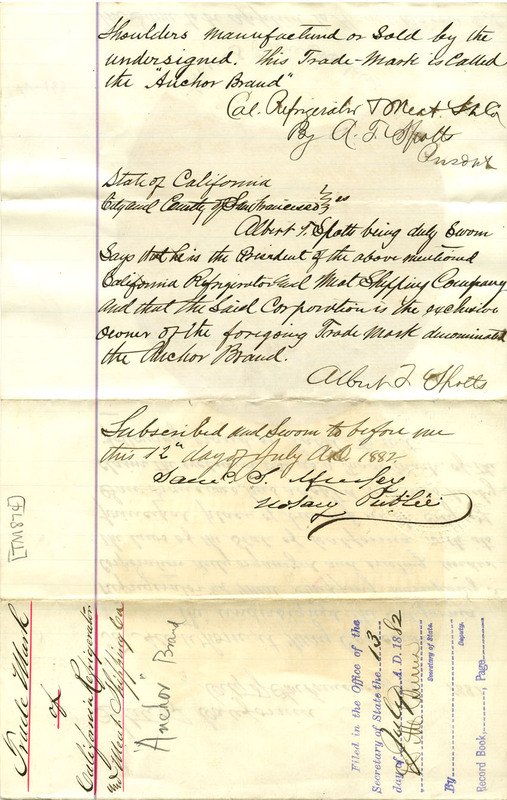 Shoulders manufactured or Sold by the
undersigned. This Trade-Mark is Called
the "Anchor Brand"
Cal. Refrigerator & Meat Sh Co
By A. T. Spotts
State of California
City and County of San Francisco } ss
Albert T. Spotts being duly Sworn
Says that he is the President of the above mentioned
California Refrigerator and Meat Shipping Company
and that the Said Corporation is the exclusive
owner of the foregoing Trade Mark denominated
the Anchor Brand.
Albert T. Spotts
Subscribed and Sworn to before me
this 12" day of July A.D. 1882.
Notary Public
[TM874]
Trade Mark
of
California Refrigerator
and Meat Shipping Co
"Anchor" Brand
Filed in the Office of the
Secretary of State the 13
day of July A. D. 1882
Secretary of State.
By Deputy.
Record Book, Page